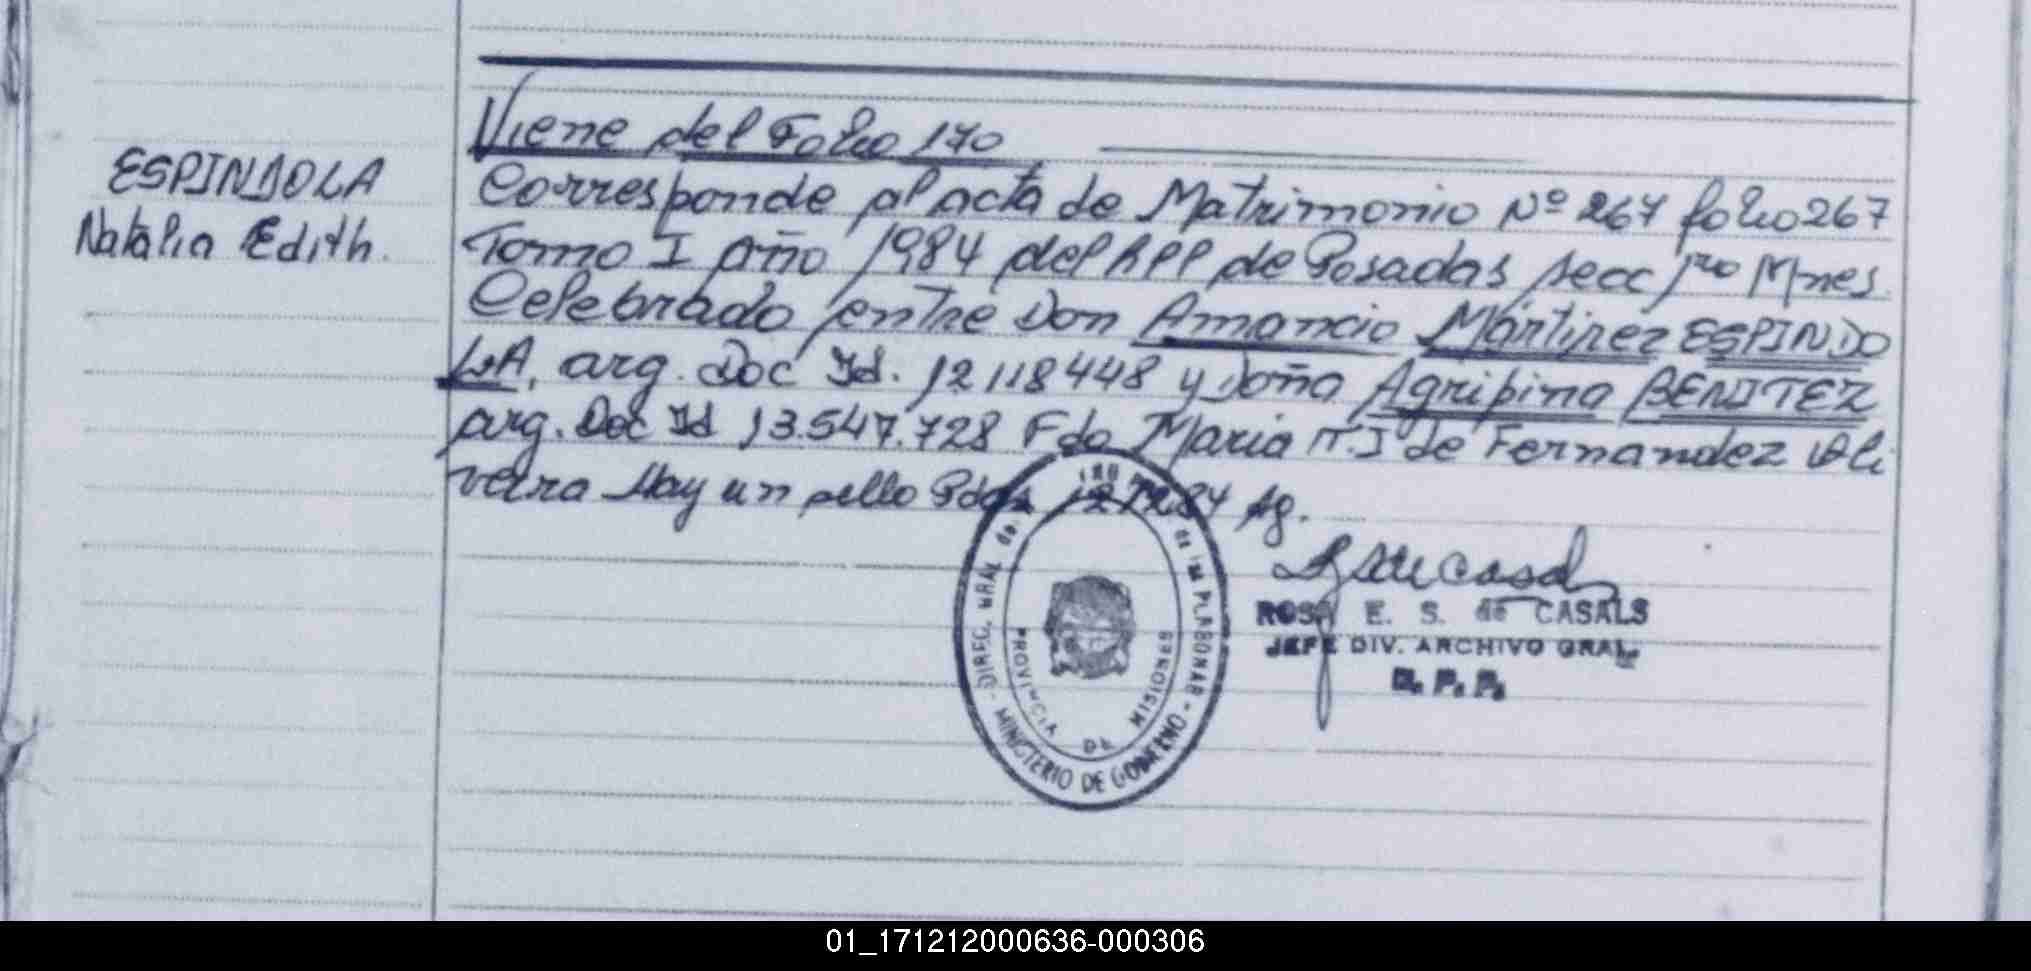 Viene del Folio 170
ESPINDOLA
Natalia Edith.
Corresponde al acta de Matrimonio Nº 267 folio 267
Tomo I Año 1984 del RPP de Posadas secc 1ra Mnes.
Celebrado entre Don Amancio Martinez ESPINDO
LA, arg. Doc Id. 12118448 y Doña Agripina BENITEZ
arg. Doc Id 13.547.728 Fdo Maria T. J de Fernandez Oli
veira Hay un sello Pdas Ag.
ROSA E. S. de CASALS
JEFE DIV. ARCHIVO GRAL.
R. P. P.
DIREC. GRAL de
MINISTERIO DE GOBIERNO
PROVINCIA DE MISIONES
01_171212000636-000306